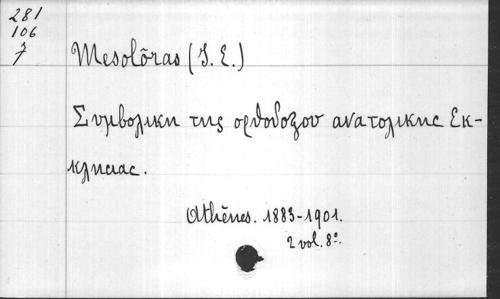 281
106
7
Mesolōras (I. E.)
Συμβολικη της ορθοδοξου ανατολικης Εκ-
κλησιας.
Athènes. 1883-1901.
2 vol. 8º.